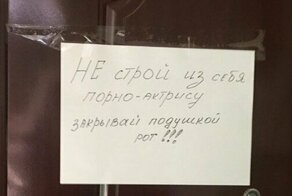 НЕ СТРОЙ ИЗ СЕБЯ
ПОРНО-АКТРИСУ
ЗАКРЫВАЙ ПОДУШКОЙ
РОТ!!!